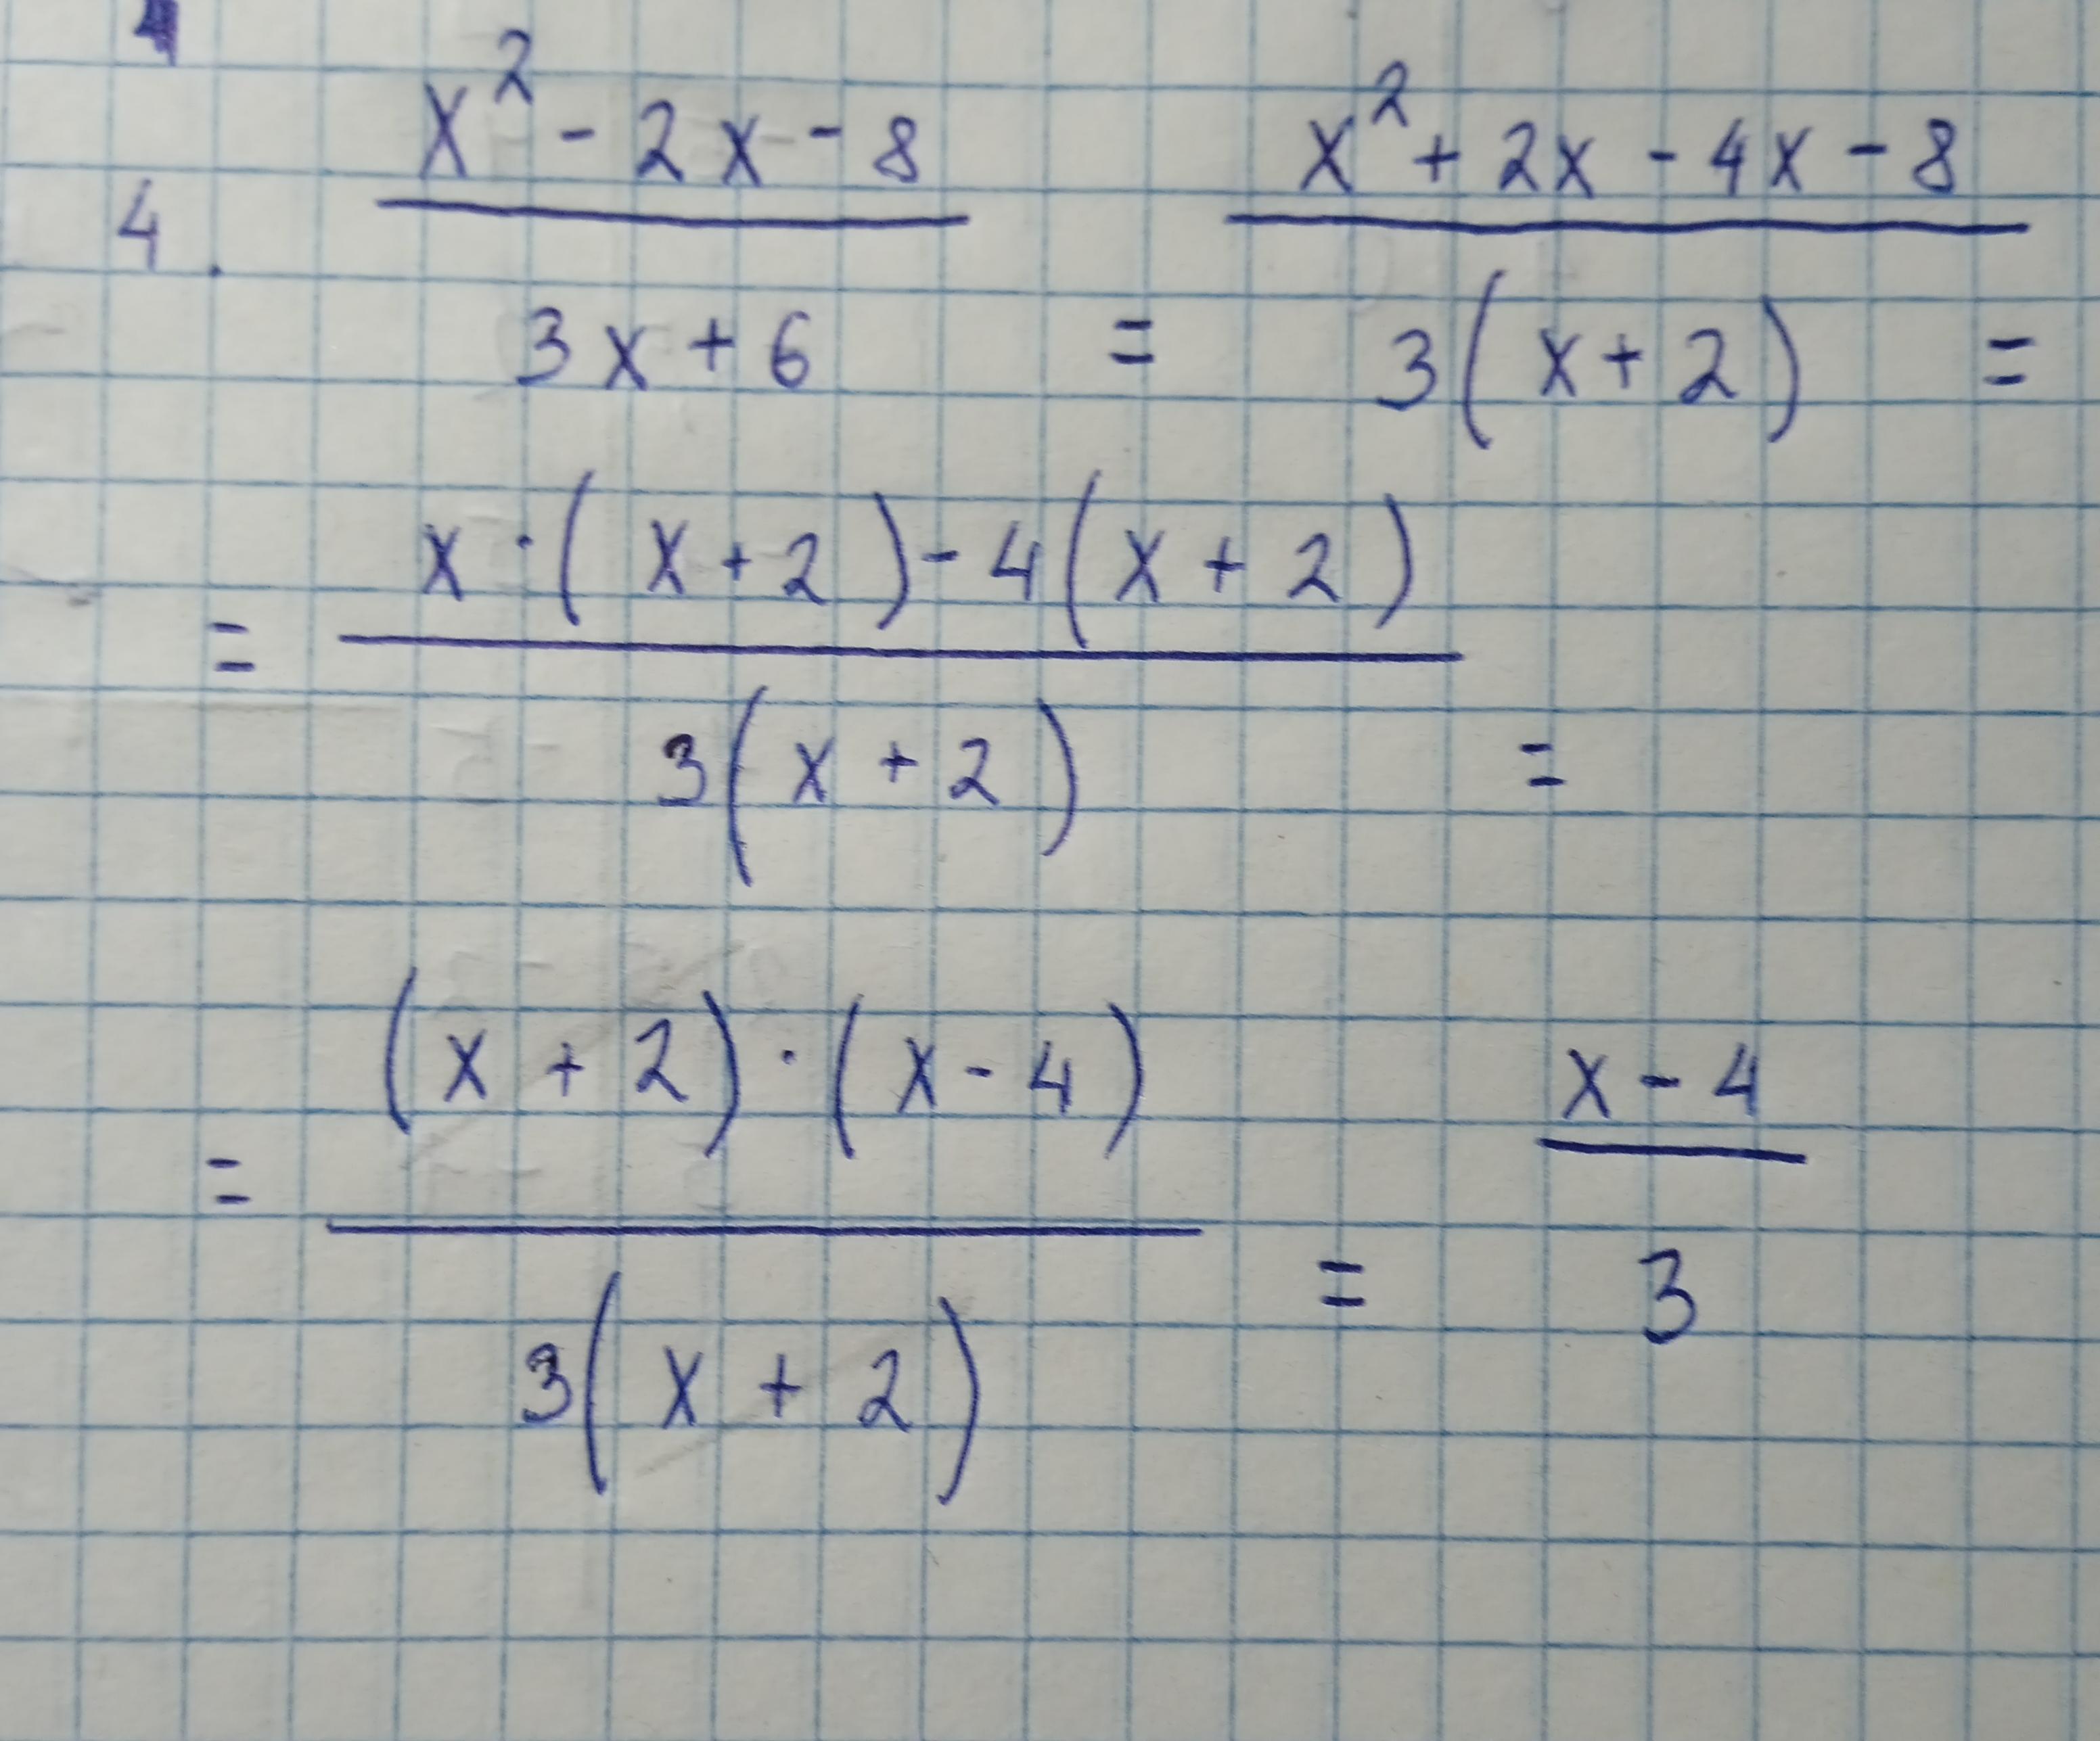 4. x² - 2x - 8 / 3x + 6 = x² + 2x - 4x - 8 / 3(x + 2) =
= x · (x + 2) - 4(x + 2) / 3(x + 2) =
= (x + 2) · (x - 4) / 3(x + 2) = x - 4 / 3